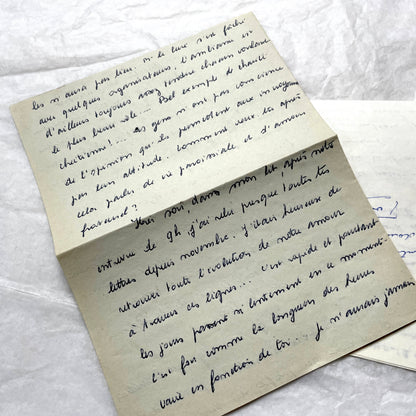 les n'aura pas lieu. M. le curé s'est fâché
avec quelques organisateurs. L'ambiance est
d'ailleurs toujours assez tendue chacun voulant
le plus beau rôle... Bel exemple de charité
chrétienne!... Les gens n'ont pas conscience
de l'opinion qu'ils permettent aux incroyants
par leur attitude. Comment veux-tu après
cela parler de vie paroissiale et d'amour
fraternel?
Hier soir, dans mon lit, après notre
entrevue de 9h j'ai relu presque toutes tes
lettres depuis novembre. J'étais heureuse de
retrouver toute l'évolution de notre amour
à travers ces lignes... C'est rapide et pourtant
les jours passent si lentement en ce moment.
C'est fou comme la longueur des heures
varie en fonction de toi... Je n'aurais jamais